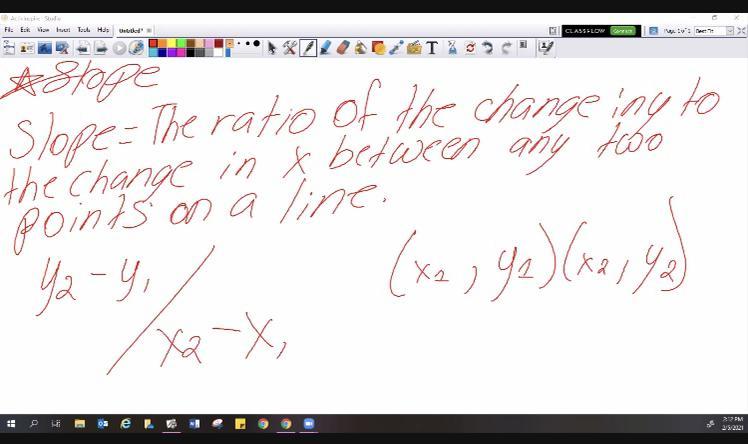 ActivInspire - Studio
File Edit View Insert Tools Help Untitled*
CLASSFLOW Connect Page 1 of 1 Best Fit
Slope
Slope = The ratio of the change in y to
the change in x between any two
points on a line.
y2 - y1 / x2 - x1
(x1, y1) (x2, y2)
2:12 PM
2/5/2021